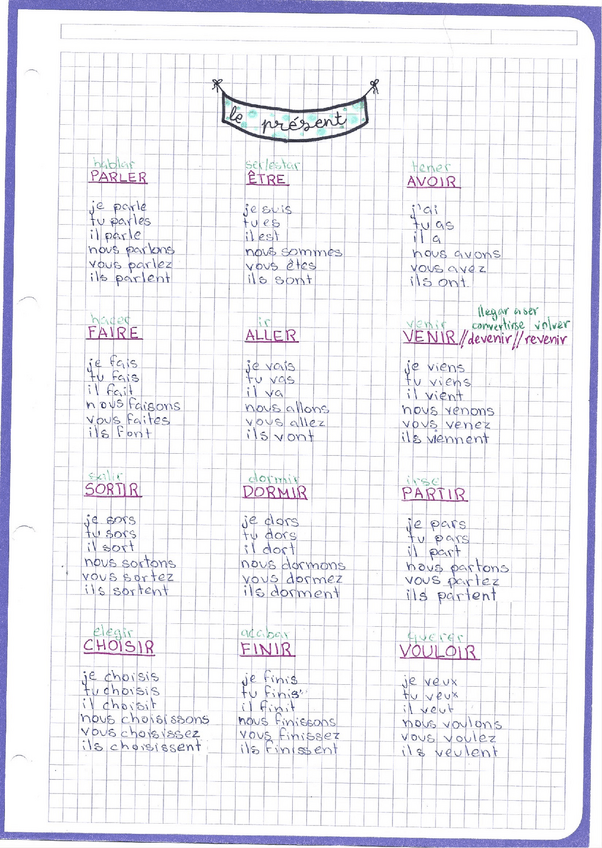 le présent
hablar
PARLER
je parle
tu parles
il parle
nous parlons
vous parlez
ils parlent
ser/estar
ÊTRE
je suis
tu es
il est
nous sommes
vous êtes
ils sont
tener
AVOIR
j'ai
tu as
il a
nous avons
vous avez
ils ont
hacer
FAIRE
je fais
tu fais
il fait
nous faisons
vous faites
ils font
ir
ALLER
je vais
tu vas
il va
nous allons
vous allez
ils vont
llegar a ser
venir convertirse volver
VENIR//devenir//revenir
je viens
tu viens
il vient
nous venons
vous venez
ils viennent
salir
SORTIR
je sors
tu sors
il sort
nous sortons
vous sortez
ils sortent
dormir
DORMIR
je dors
tu dors
il dort
nous dormons
vous dormez
ils dorment
irse
PARTIR
je pars
tu pars
il part
nous partons
vous partez
ils partent
elegir
CHOISIR
je choisis
tu choisis
il choisit
nous choisissons
vous choisissez
ils choisissent
acabar
FINIR
je finis
tu finis
il finit
nous finissons
vous finissez
ils finissent
querer
VOULOIR
je veux
tu veux
il veut
nous voulons
vous voulez
ils veulent